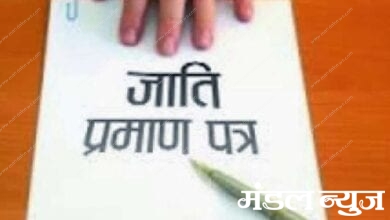 जाति
प्रमाण पत्र
मंडल न्युज